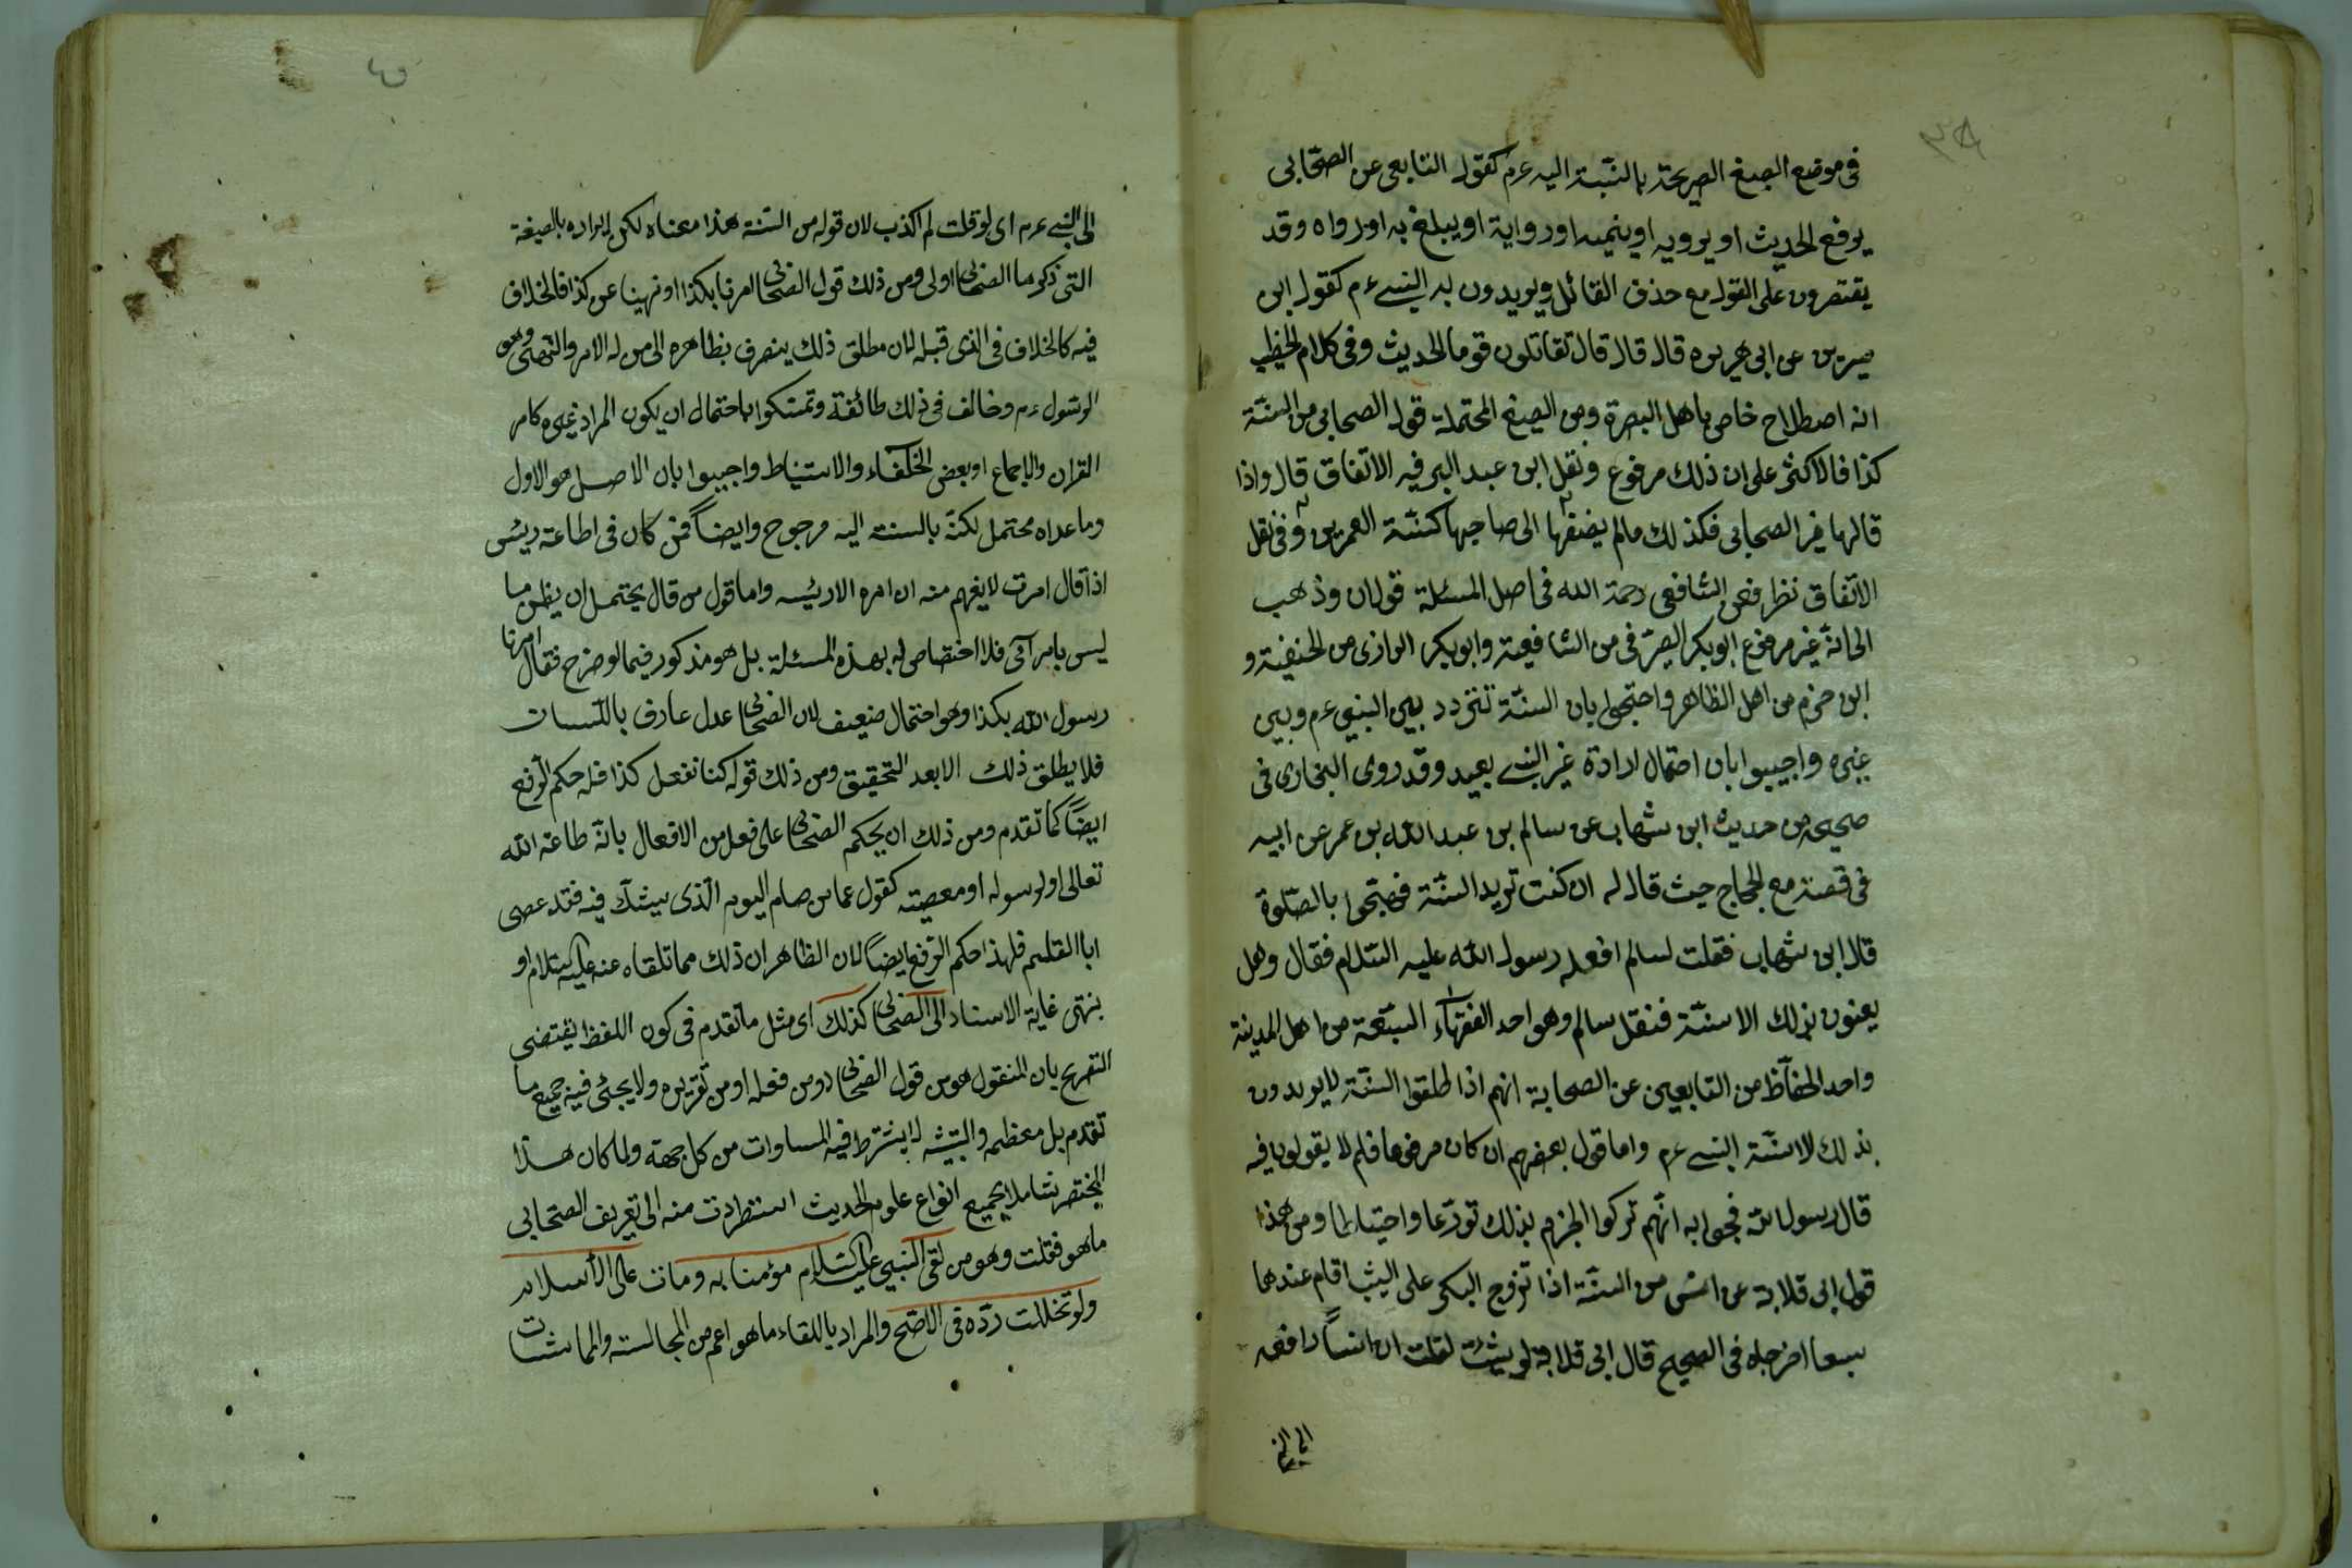 في موضع الصيغ الصريحة بالنسبة اليه عم كقول التابعى عن الصحابى
يرفع الحديث او يرويه او ينميه او رواية او يبلغ به او رواه وقد
يقتصرون على القول مع حذف القائل ويريدون به النبى عم كقول ابن
سيرين عن ابى هريره قال قال قال تقاتلون قوما الحديث وفى كلام الخطيب
انه اصطلاح خاص باهل البصرة ومن الصيغ المحتملة قول الصحابى من السنة
كذا فالاكثر على ان ذلك مرفوع ونقل ابن عبد البر فيه الاتفاق قال واذا
قالها غير الصحابى فكذلك مالم يضفها الى صاحبها كسنة العمرين وفى نقل
الاتفاق نظر فعن الشافعى رحمة الله فى اصل المسئلة قولان وذهب
الى انه غير مرفوع ابو بكر الصيرفى من الشافعية وابو بكر الرازى من الحنفية و
ابن حزم من اهل الظاهر واحتجوا بان السنة تتردد بين النبى عم وبين
غيره واجيبوا بان احتمال ارادة غير النبى بعيد وقد روى البخارى فى
صحيحه من حديث ابن شهاب عن سالم بن عبد الله بن عمر عن ابيه
فى قصته مع الحجاج حيث قال له ان كنت تريد السنة فهجّروا بالصلوة
قال ابن شهاب فقلت لسالم افعله رسول الله عليه السلام فقال وهل
يعنون بذلك الا سنته فنقل سالم وهو احد الفقهاء السبعة من اهل المدينة
واحد الحفاظ من التابعين عن الصحابة انهم اذا طلقوا السنة لا يريدون
بذلك الا سنة النبى عم واما قول بعضهم ان كان مرفوعا فلم لا يقولون فيه
قال رسول الله فجوابه انهم تركوا الجزم بذلك تورعا واحتياطا ومن هذا
قول ابى قلابة عن انس من السنة اذا تزوج البكر على الثيب اقام عندها
سبعا اخرجاه فى الصحيح قال ابى قلابة لو شئت لقلت ان انسا رفعه
الى النبى
الى النبى عم اى لو قلت لم اكذب لان قوله من السنة هذا معناه لكن ايراده بالصيغة
التى ذكرها الصحابى اولى ومن ذلك قول الصحابى امرنا بكذا او نهينا عن كذا فالخلاف
فيه كالخلاف فى الذى قبله لان مطلق ذلك ينصرف بظاهره الى من له الامر والنهى وهو
الرسول عم وخالف فى ذلك طائفة وتمسكوا باحتمال ان يكون المراد غيره كامر
القران والاجماع او بعض الخلفاء والاستنباط واجيبوا بان الاصل هو الاول
وما عداه محتمل لكنه بالسنة اليه مرجوح وايضاً فمن كان فى اطاعة رئيس
اذا قال امرت لا يفهم منه ان امره الا رئيسه واما قول من قال يحتمل ان يظن ما
ليس بامر آمر فلا اختصاص له بهذه المسئلة بل هو مذكور فيما لو صرح فقال امرنا
رسول الله بكذا وهو احتمال ضعيف لان الصحابى عدل عارف باللسان
فلا يطلق ذلك الا بعد التحقيق ومن ذلك قوله كنا نفعل كذا فله حكم الرفع
ايضاً كما تقدم ومن ذلك ان يحكم الصحابى على فعل من الافعال بانه طاعة الله
تعالى او لرسوله او معصيته كقول عمار من صام اليوم الذى يشك فيه فقد عصى
ابا القاسم فلهذا حكم الرفع ايضاً لان الظاهر ان ذلك مما تلقاه عنه عليه السلام او
ينتهى غاية الاسناد الى الصحابى كذلك اى مثل ما تقدم فى كون اللفظ يقتضى
التصريح بان المنقول هو من قول الصحابى او من فعله او من تقريره ولا يجئ فيه جميع ما
تقدم بل معظمه والتشبيه لا يشترط فيه المساوات من كل جهة ولما كان هذا
المختصر شاملا لجميع انواع علوم الحديث استطردت منه الى تعريف الصحابى
ما هو فقلت وهو من لقى النبى عليه السلام مؤمنا به ومات على الاسلام
ولو تخللت ردّه فى الاصح والمراد باللقاء ما هو اعم من المجالسة والمماشات